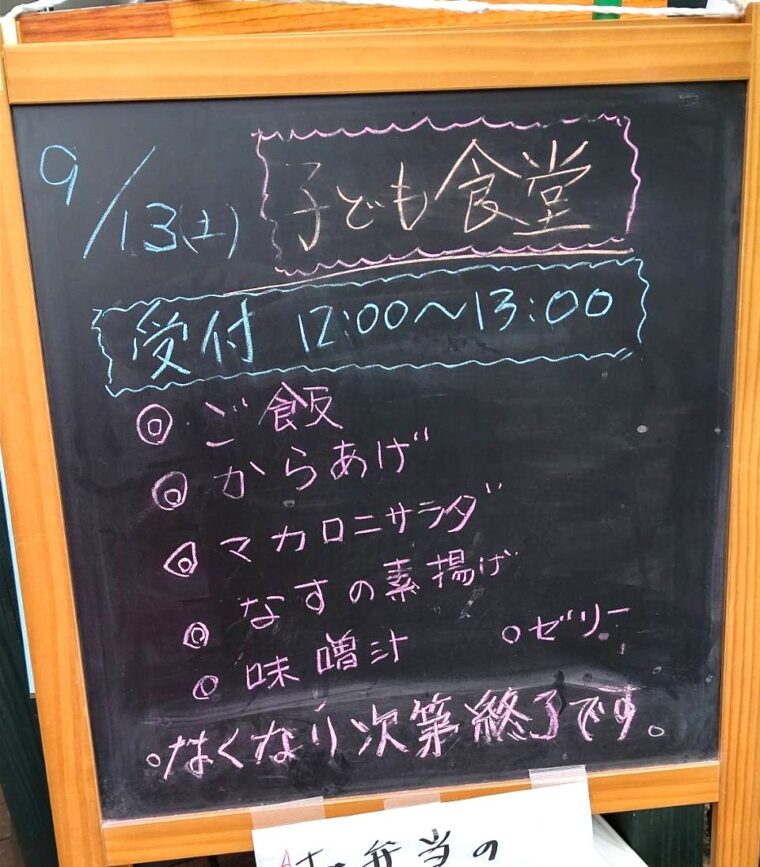 9/13(土) 子ども食堂
受付 12:00～13:00
◎ ご飯
◎ からあげ
◎ マカロニサラダ
◎ なすの素揚げ
◎ 味噌汁 ○ゼリー
○なくなり次第終了です。
弁当の